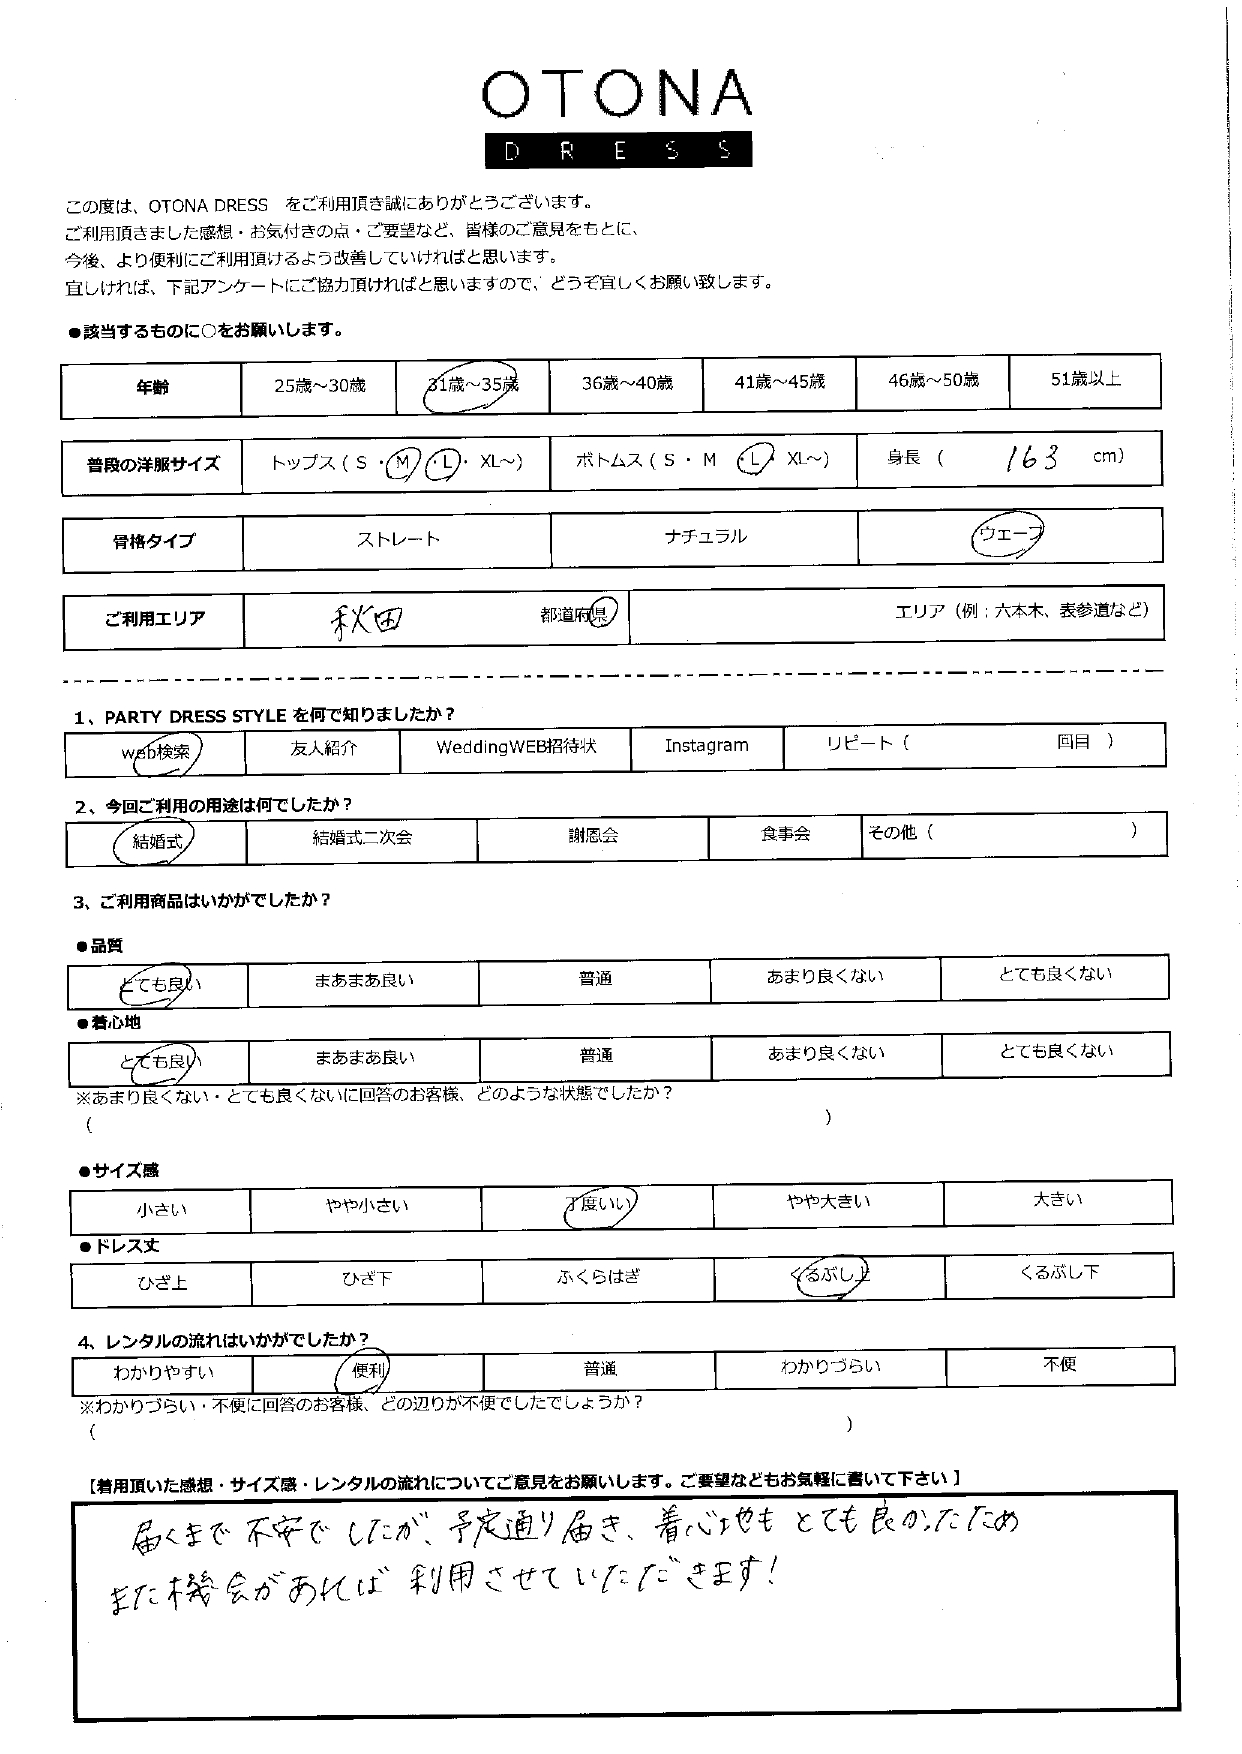 OTONA
DRESS
この度は、OTONA DRESS をご利用頂き誠にありがとうございます。
ご利用頂きました感想・お気付きの点・ご要望など、皆様のご意見をもとに、
今後、より便利にご利用頂けるよう改善していければと思います。
宜しければ、下記アンケートにご協力頂ければと思いますので、どうぞ宜しくお願い致します。
●該当するものに○をお願いします。
年齢 25歳～30歳 31歳～35歳 36歳～40歳 41歳～45歳 46歳～50歳 51歳以上
普段の洋服サイズ トップス（ S ・ M ・ L ・ XL～） ボトムス（ S ・ M ・ L ・ XL～） 身長 （ 163 cm）
骨格タイプ ストレート ナチュラル ウェーブ
ご利用エリア 秋田 都道府県 エリア（例；六本木、表参道など）
1、PARTY DRESS STYLE を何で知りましたか？
web検索 友人紹介 WeddingWEB招待状 Instagram リピート（ 回目 ）
2、今回ご利用の用途は何でしたか？
結婚式 結婚式二次会 謝恩会 食事会 その他（ ）
3、ご利用商品はいかがでしたか？
●品質
とても良い まあまあ良い 普通 あまり良くない とても良くない
●着心地
とても良い まあまあ良い 普通 あまり良くない とても良くない
※あまり良くない・とても良くないに回答のお客様、どのような状態でしたか？
（ ）
●サイズ感
小さい やや小さい 丁度いい やや大きい 大きい
●ドレス丈
ひざ上 ひざ下 ふくらはぎ くるぶし上 くるぶし下
4、レンタルの流れはいかがでしたか？
わかりやすい 便利 普通 わかりづらい 不便
※わかりづらい・不便に回答のお客様、どの辺りが不便でしたでしょうか？
（ ）
【着用頂いた感想・サイズ感・レンタルの流れについてご意見をお願いします。ご要望などもお気軽に書いて下さい】
届くまで不安でしたが、予定通り届き、着心地もとても良かったため
また機会があれば利用させていただだきます！